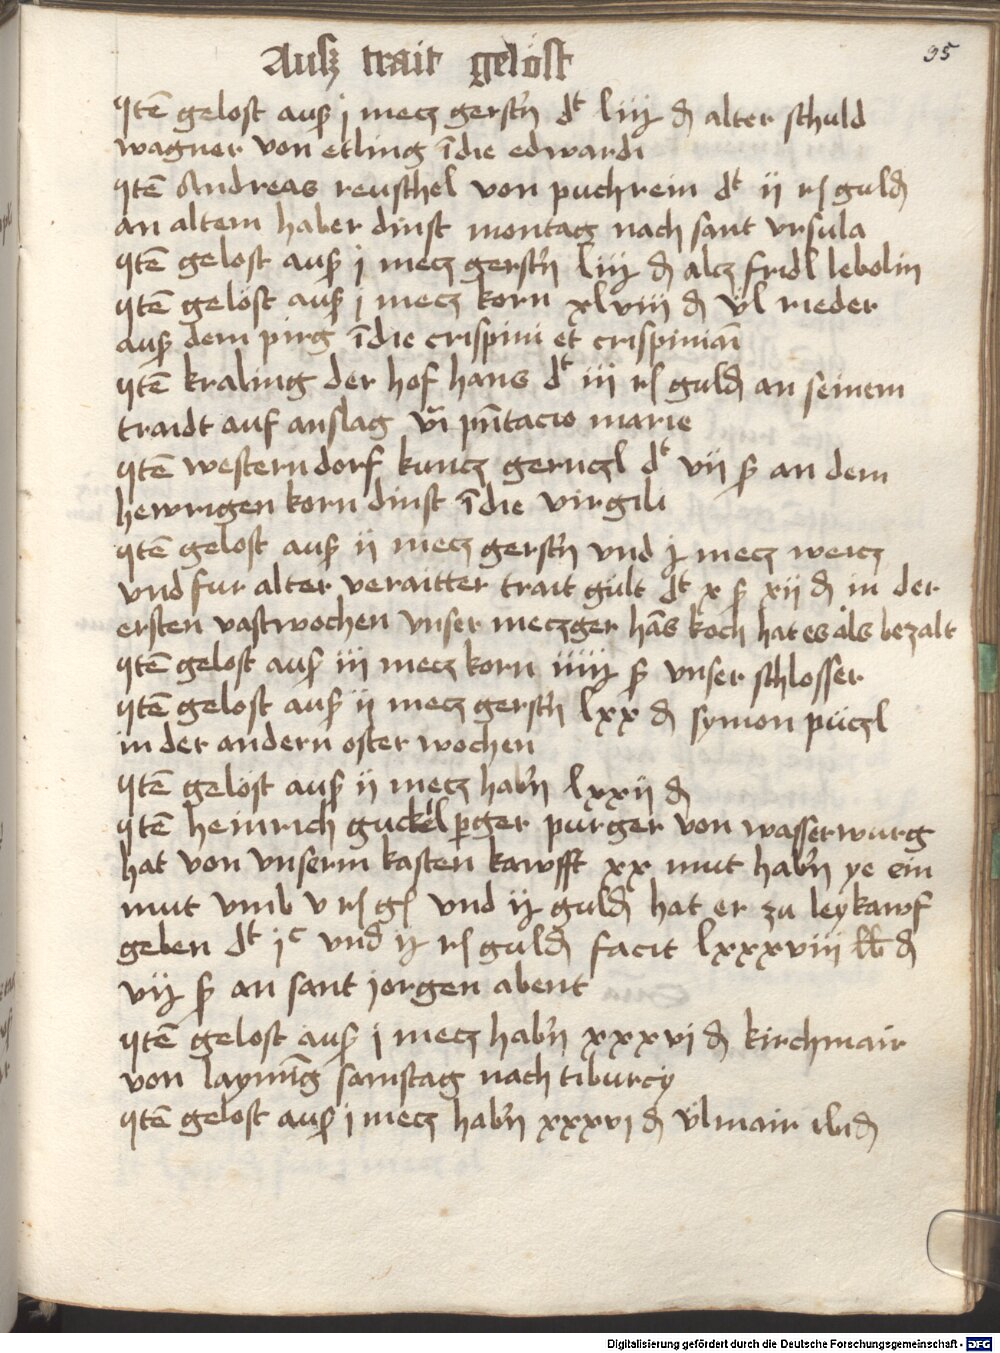 Ausz trait gelöst
95
Itē gelost aus j mecz gerstn̄ dt liiij d alter schuld
wagner von etling īdie edwardi
Itē Andreas reuschel von puchrein dt ij rh guldn̄
an altem haber dinst montag nach sant vrsula
Itē gelost aus j mecz gerstn̄ liiij d alcz fridl lebolin
Itē gelöst aus j mecz korn xlviii d Vl rieder
aus dem pirg īdie crispini et crispiniāi
Itē kraling der hof hans dt iij rh guldn̄ an seinem
traidt auf anslag pn̄tacio marie
Itē westerndorf kuncz geruczl dt vij s an dem
hewrigen korn dinst īdie virgili
Itē gelost aus ij mecz gerstn̄ vnd mecz weicz
vnd fur alter veraitter trait gült dt x s xij d in der
ersten vastwochen vnser meczger hās koch hat es als bezalt
Itē gelost aus iij mecz korn s vnser schlosser
Itē gelost aus ij mecz gerstn̄ lxx d symon püczl
in der andern oster wochen
Itē gelöst aus ij mecz habn̄ lxxij d
Itē heinrich guckēlperger purger von wasserwurg
hat von vnserm kasten kawfft xx mut habn̄ ye ein
mut vmb v rh gl vnd guldn̄ hat er zu leykawf
geben dt jc vnd rh guldn̄ facit lxxxviii lb d
s an sant jorgen abent
Itē gelost aus j mecz habn̄ xxxvi d kirchmair
von laymīg samstag nach tiburcÿ
Itē gelost aus j mecz habn̄ xxxvj d Vlmair ibid
Digitalisierung gefördert durch die Deutsche Forschungsgemeinschaft - DFG